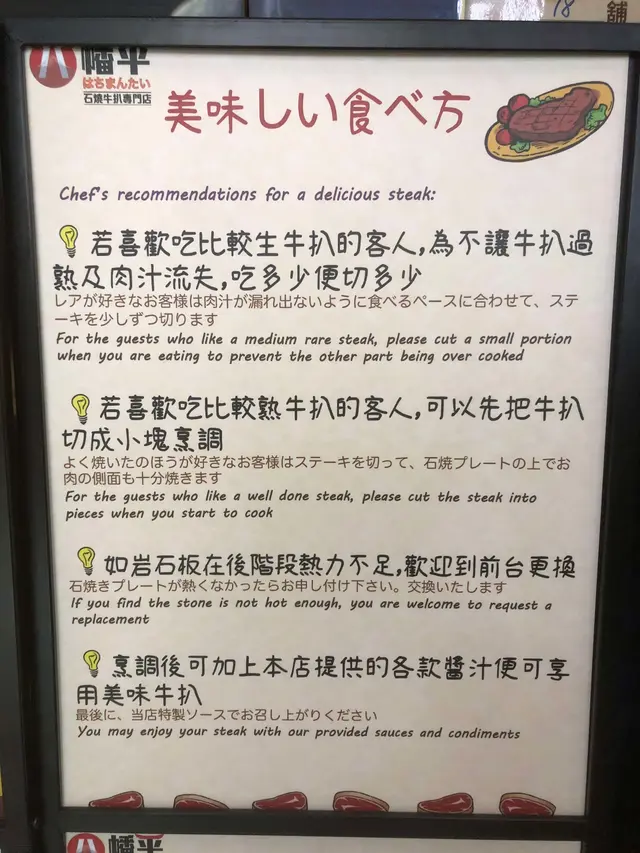 18
舖
幡平
はちまんたい
石燒牛扒專門店
美味しい食べ方
Chef's recommendations for a delicious steak:
若喜歡吃比較生牛扒的客人,為不讓牛扒過
熟及肉汁流失,吃多少便切多少
レアが好きなお客様は肉汁が漏れ出ないように食べるペースに合わせて、ステ
ーキを少しずつ切ります
For the guests who like a medium rare steak, please cut a small portion
when you are eating to prevent the other part being over cooked
若喜歡吃比較熟牛扒的客人,可以先把牛扒
切成小塊烹調
よく焼いたのほうが好きなお客様はステーキを切って、石焼プレートの上でお
肉の側面も十分焼きます
For the guests who like a well done steak, please cut the steak into
pieces when you start to cook
如岩石板在後階段熱力不足,歡迎到前台更換
石焼きプレートが熱くなかったらお申し付け下さい。交換いたします
If you find the stone is not hot enough, you are welcome to request a
replacement
烹調後可加上本店提供的各款醬汁便可享
用美味牛扒
最後に、当店特製ソースでお召し上がりください
You may enjoy your steak with our provided sauces and condiments
幡平